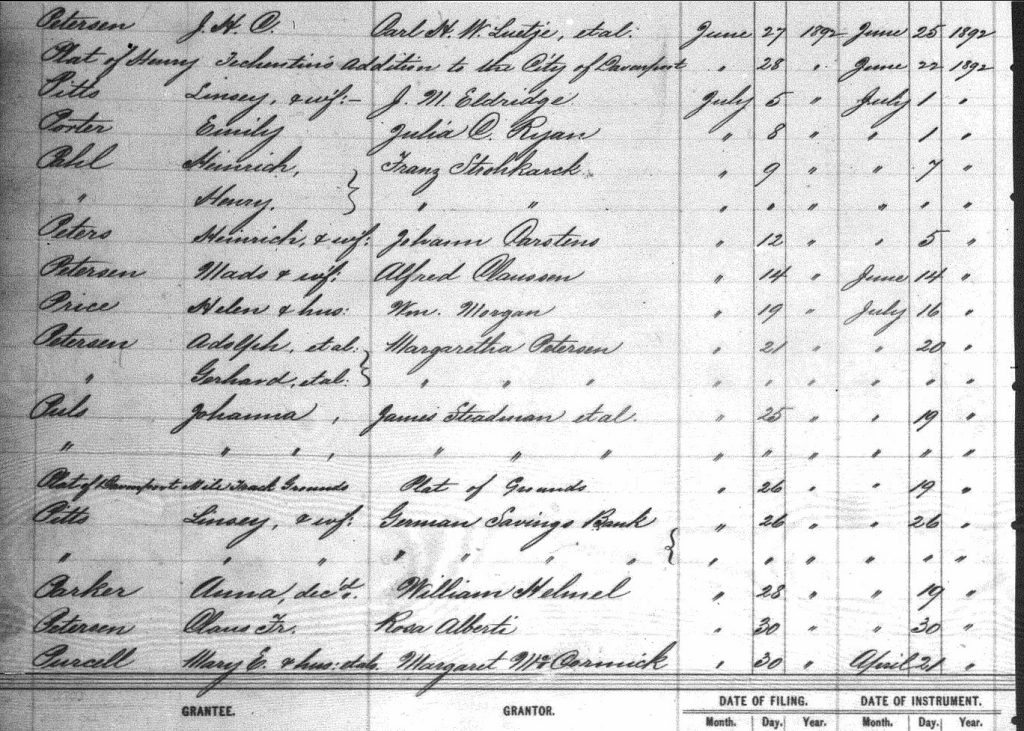 Petersen J. H. C. Carl H. W. Luetje, etal: June 27 1892 June 25 1892
Plat of Henry Tschentin's Addition to the City of Davenport " 28 " June 22 1892
Pitts Linsey, & wif:- J. M. Eldridge July 5 " July 1 "
Porter Emily Julia C. Ryan " 8 " " 1 "
Pahl Heinrich, Franz Strohkarck " 9 " " 7 "
" Henry. } " " " " " " " "
Peters Heinrich, & wif: Johann Carstens " 12 " " 5 "
Petersen Mads & wif: Alfred Claussen " 14 " June 14 "
Price Helen & hus: Wm. Morgan " 19 " July 16 "
Petersen Adolph, etal: Margaretha Petersen " 21 " " 20 "
" Gerhard, etal: } " " " " " " " " "
Puls Johanna , James Steadman etal. " 25 " " 19 "
" " " , " " " " " " " " "
Plat of Davenport Mile Track Grounds Plat of Grounds " 26 " " 19 "
Pitts Linsey, & wif: German Savings Bank " 26 " " 26 "
" " " " " " " } " " " " " "
Parker Anna, dec'd. William Helmel " 28 " " 19 "
Petersen Claus Fr. Rosa Alberti " 30 " " 30 "
Purcell Mary E. & hus: etal. Margaret McCormick " 30 " April 21 "
GRANTEE. GRANTOR. DATE OF FILING. DATE OF INSTRUMENT.
Month. Day. Year. Month. Day. Year.